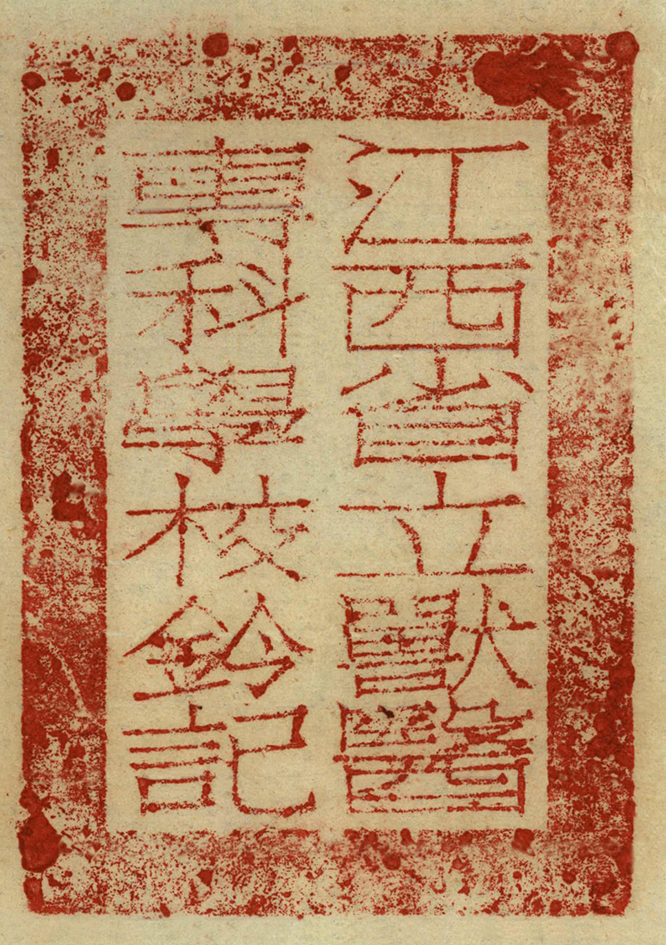 江西省立獸醫
專科學校鈐記